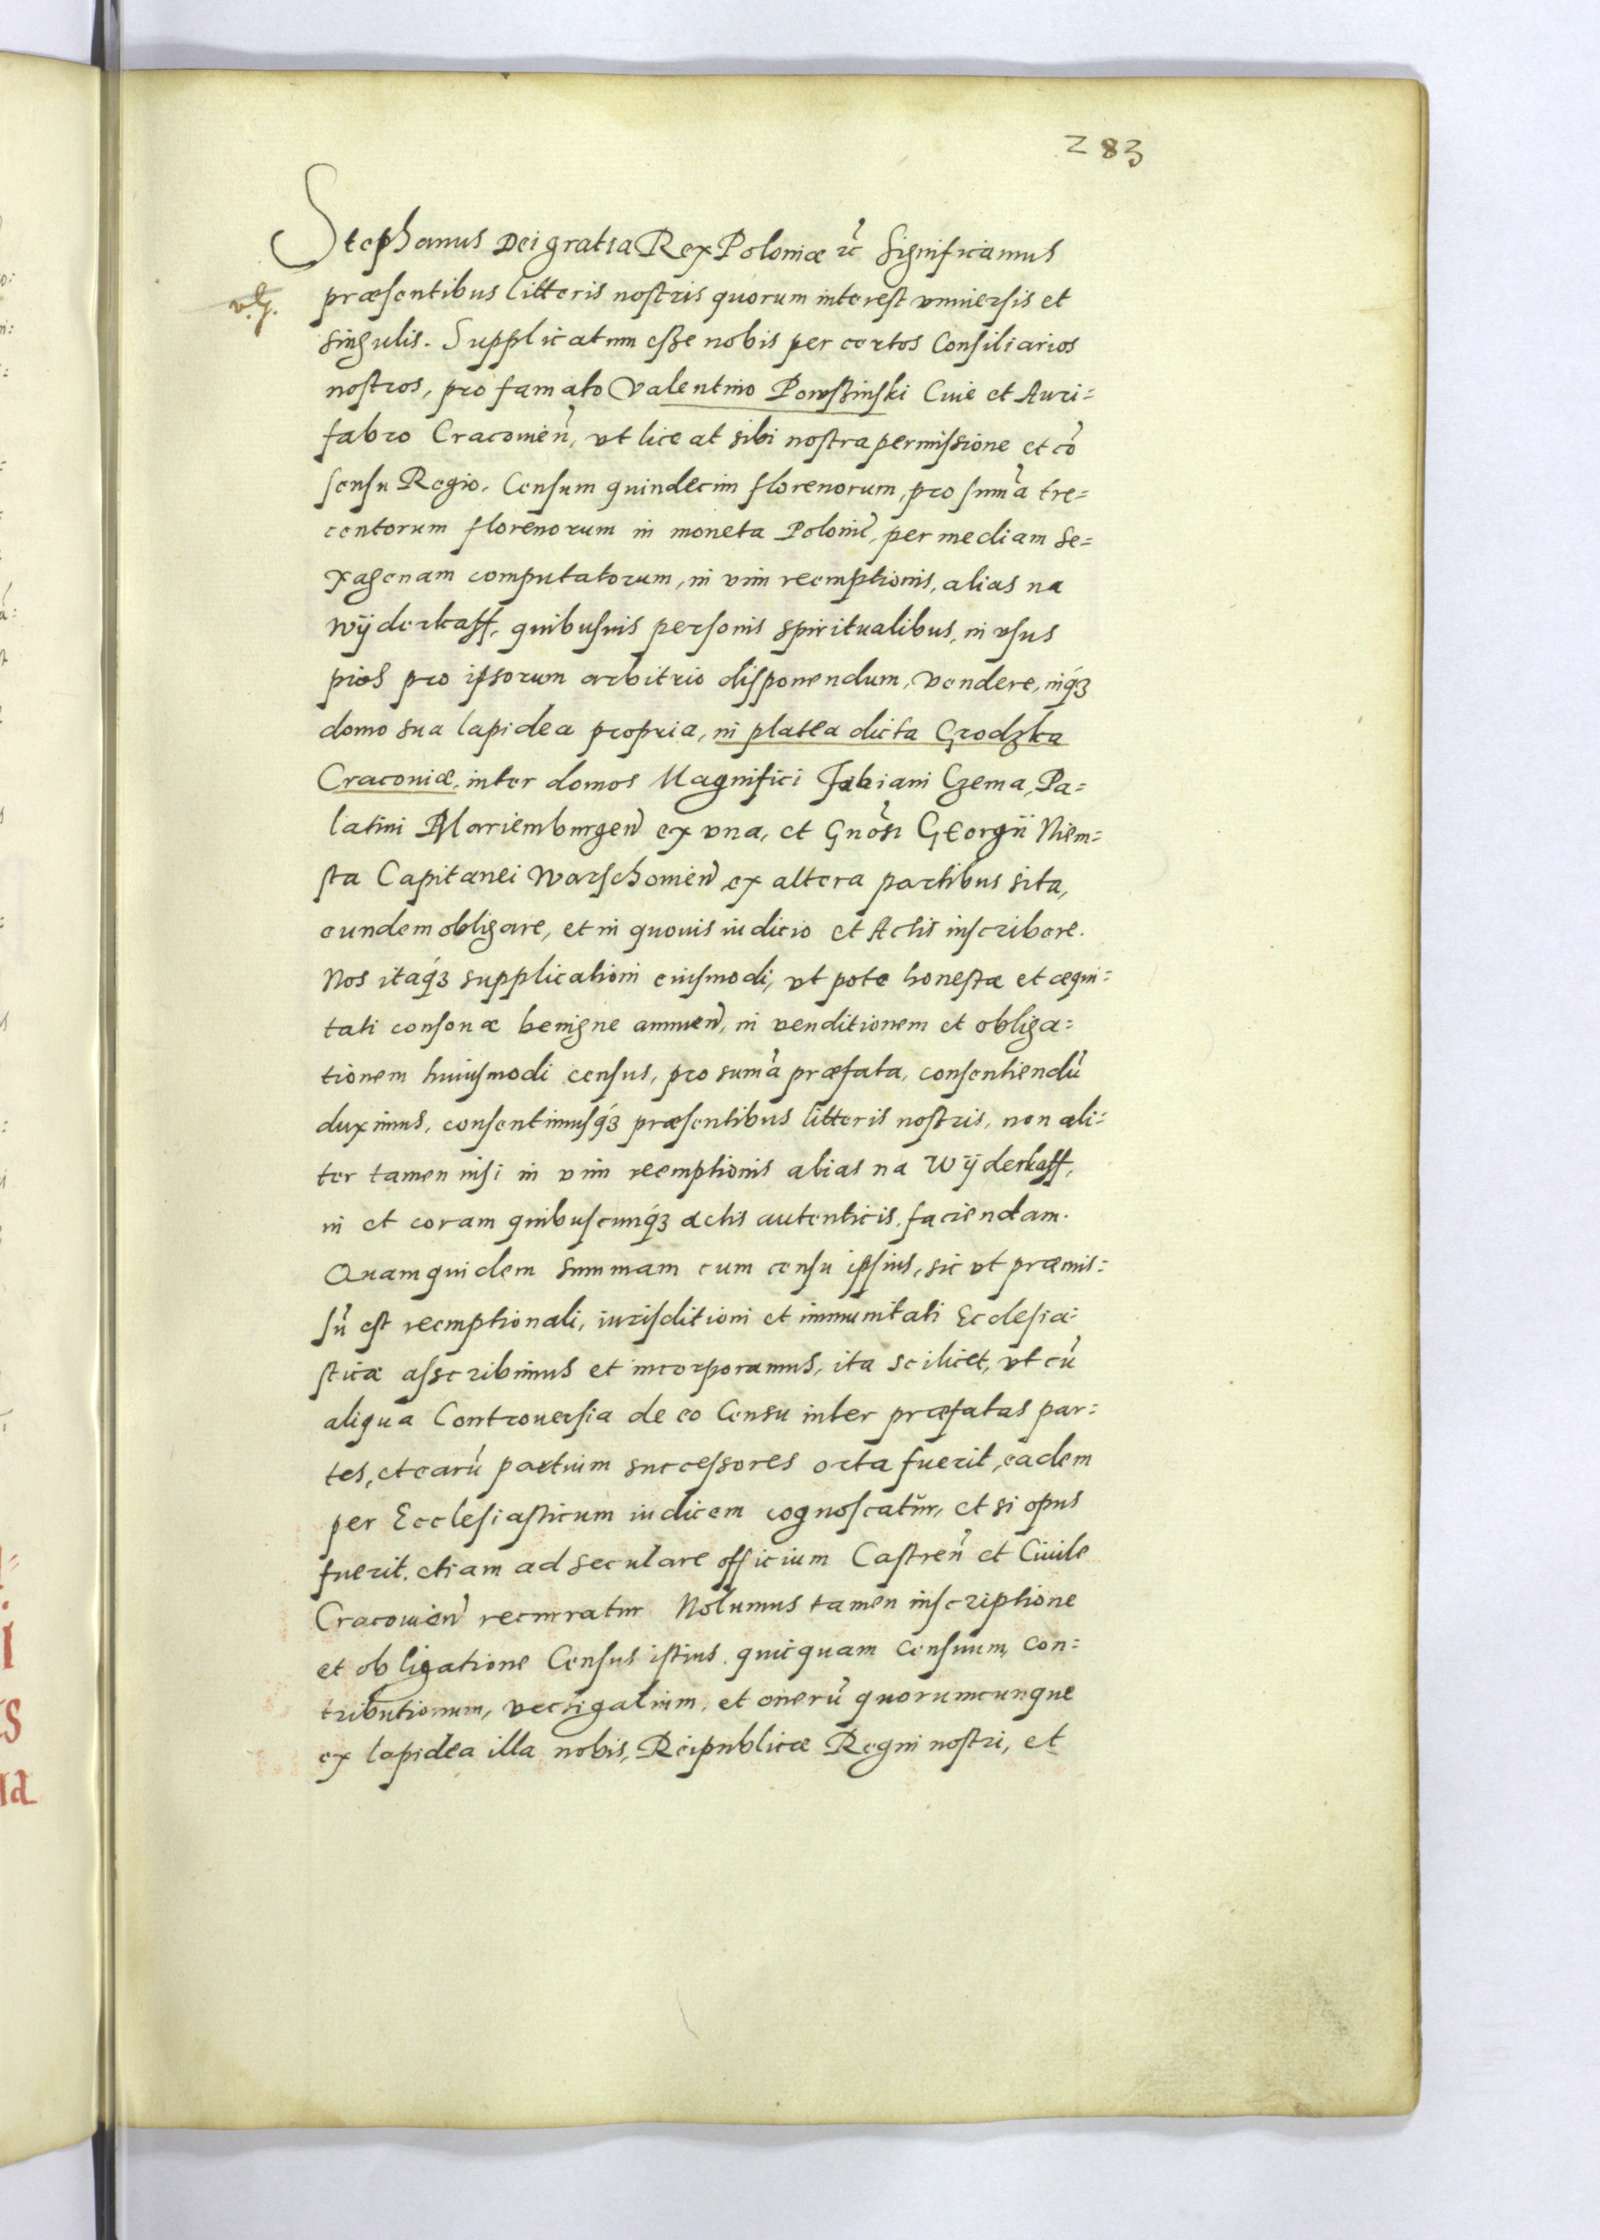 283
Stephanus Dei gratia Rex Poloniæ ec̃ Significamus
præsentibus litteris nostris quorum interest vniuersis et
singulis. Supplicatum esse nobis per certos Consiliarios
nostros, pro famato Valentino Powszinski Ciue et Auri=
fabro Cracouieñ, vt liceat sibi nostra permissione et cõ
sensu Regio, Censum quindecim florenorum, pro sum̃a tre=
centorum florenorum in moneta Poloniẽ, per mediam se=
xagenam computatorum, in vim reemptionis, alias na
Wÿderkaff, quibusuis personis spiritualibus, in vsus
pios pro ipsorum arbitrio disponendum, vendere, inq́ꝫ
domo sua lapidea propria, in platea dicta Grodzka
Cracouiæ, inter domos Magnifici Fabiani Czema, Pa=
latini Mariemburgeñ ex vna, et Gñosi Georgii Niem=
sta Capitanei Warschouieñ ex altera partibus sita,
eundem obligare, et in quouis iudicio et Actis inscribere.
Nos itaq́ꝫ supplicationi euismodi, vt pote honestæ et æqui=
tati consonæ benigne annueñ, in venditionem et obliga=
tionem huiusmodi census, pro sum̃a præfata, consentiendũ
duximus, consentimusq́ꝫ præsentibus litteris nostris, non ali=
ter tamen nisi in vim reemptionis alias na Wÿderkaff,
in et coram quibuscunq́ꝫ actis autenticis, faciendam.
Quamquidem summam cum censu ipsius, sic vt præmis=
sũ est reemptionali, iurisditioni et immunitati Ecclesia=
sticæ asscribimus et incorporamus, ita scilicet, vt cũ
aliqua Controuersia de eo Censu inter præfatas par=
tes, et earũ partium successores orta fuerit, eadem
per Ecclesiasticum iudicem cognoscatur, et si opus
fuerit, etiam ad seculare officium Castreñ et Ciuile
Cracouieñ recurratur Nolumus tamen inscriptione
et obligatione Census istius, quicquam censuum, con=
tributionum, vectigalium, et onerũ quorumcunque
ex lapidea illa nobis, Reipublicæ Regni nostri, et